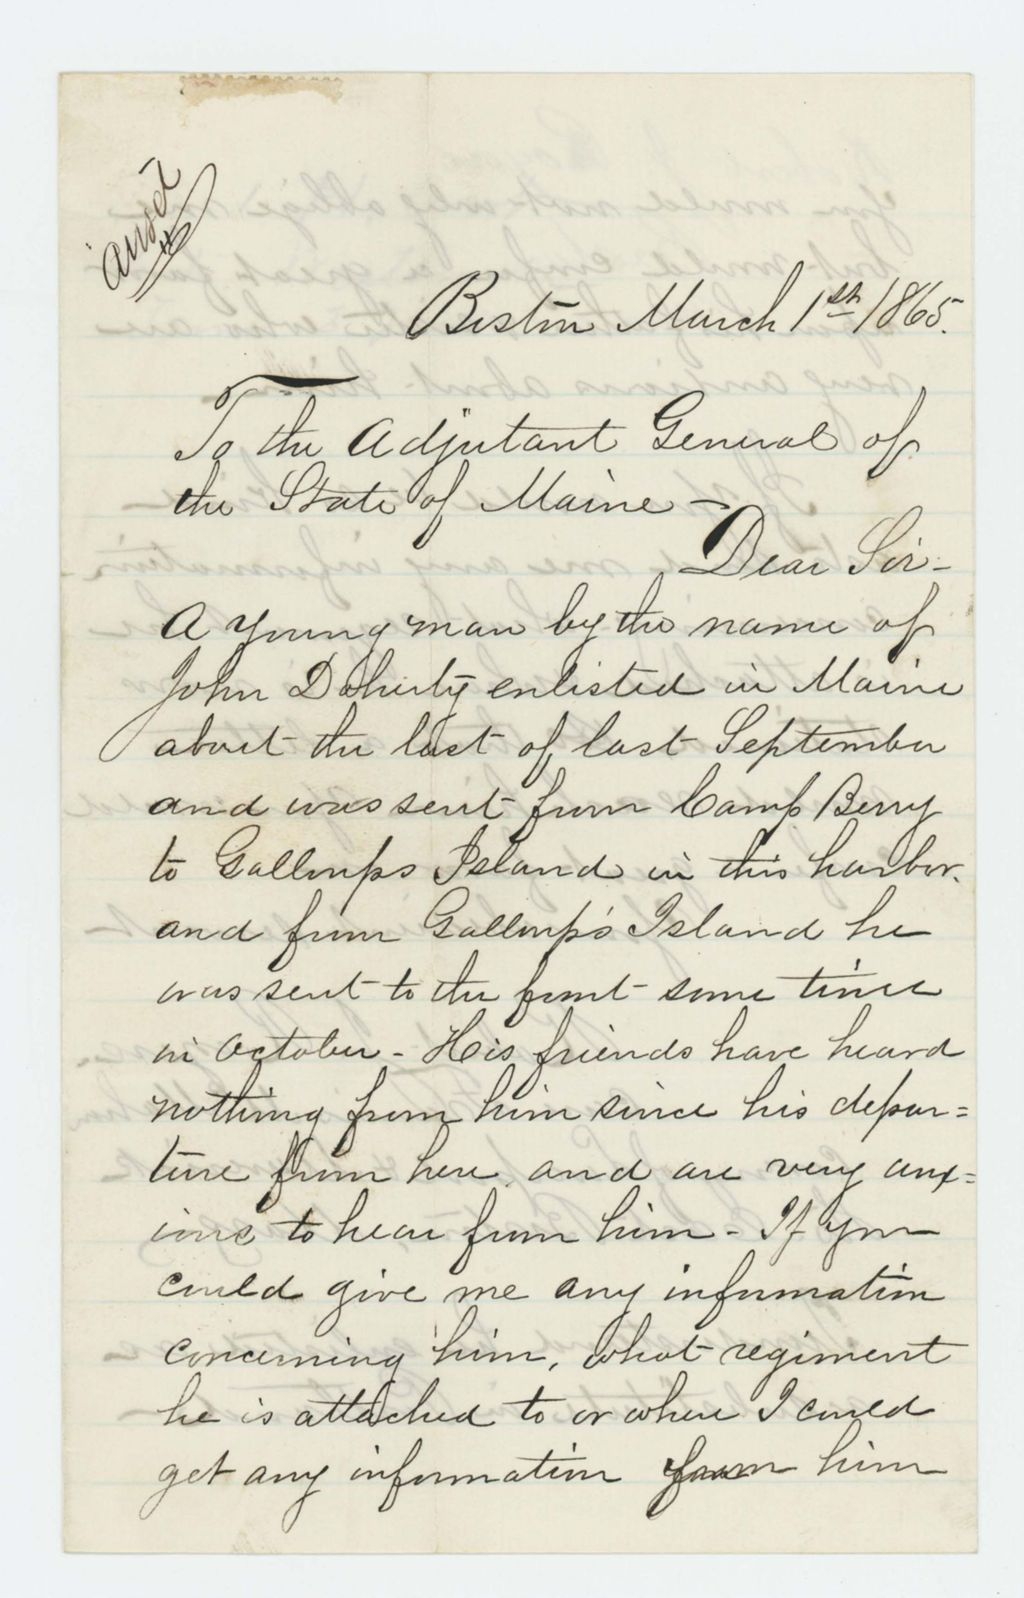 ansd
Boston March 1st 1865.
To the Adjutant General of
the State of Maine -
Dear Sir -
A young man by the name of
John Doherty enlisted in Maine
about the last of last September
and was sent from Camp Berry
to Galloups Island in this harbor.
and from Galloup's Island he
was sent to the front some time
in October - His friends have heard
nothing from him since his depar=
ture from here and are very anx=
ious to hear from him - If you
could give me any information
concerning him, what regiment
he is attached to or where I could
get any information from him